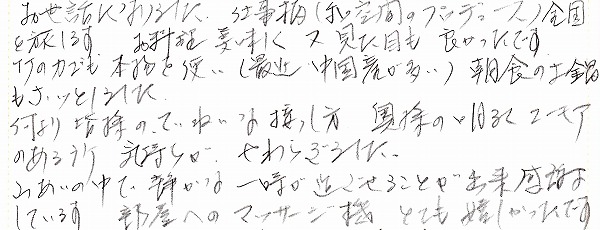 お世話になりました。 仕事柄(和空間のプロデュース)全国
を旅します お料理 美味しく 又 見た目も 良かったです
竹のカゴも 本物を使い(最近 中国産が多い) 朝食のお鍋
も
何より 皆様の、ていねいな 接し方 奥様の 明るく ユーモア
のある 気持ちが、やわらぎました。
山あいの中で、静かな 一時が 過ごせることが出来 感謝を
しています 部屋への マッサージ機 とても 嬉しかったです